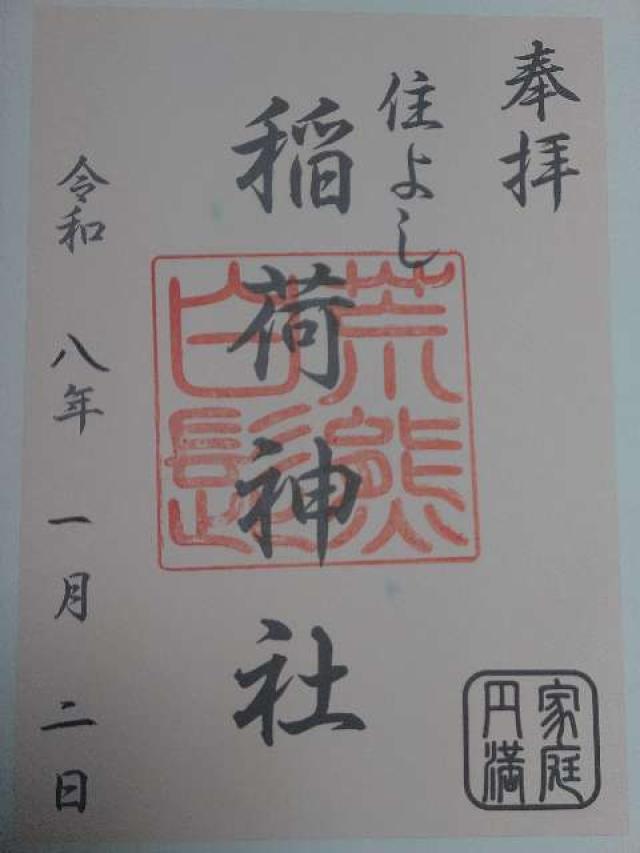 奉拝
住よし
稲荷神社
荒熊
白髭
令和八年一月二日
家庭
円満